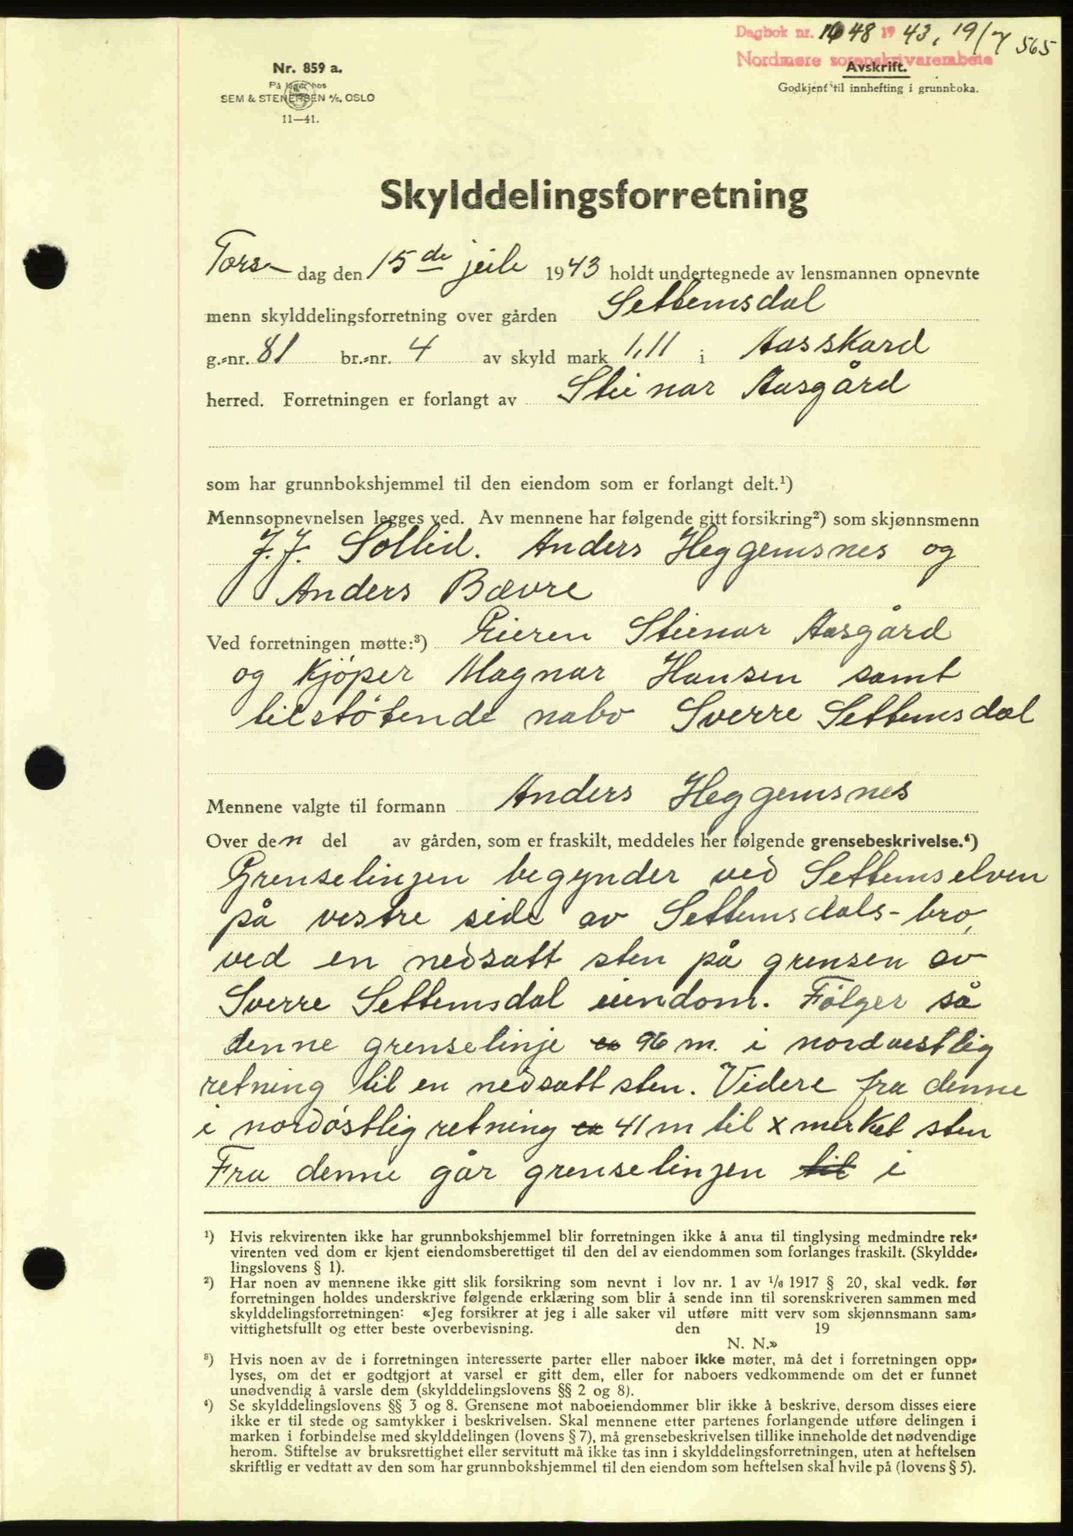 Dagbok nr. 1648 1943, 19/7 565
Nordmøre sorenskrivarembete
Avskrift.
Godkjent til innhefting i grunnboka.
Nr. 859 a.
På lager hos
SEM & STENERSEN A/S, OSLO
11—41.
Skylddelingsforretning
Tors- dag den 15de juli 1943 holdt undertegnede av lensmannen opnevnte
menn skylddelingsforretning over gården Settemsdal
g.-nr. 81 br.-nr. 4 av skyld mark 1,11 i Aasskard
herred. Forretningen er forlangt av Steinar Aasgård
som har grunnbokshjemmel til den eiendom som er forlangt delt.¹)
Mennsopnevnelsen legges ved. Av mennene har følgende gitt forsikring²) som skjønnsmenn
J. J. Sollid. Anders Heggemsnes og
Anders Bævre
Ved forretningen møtte:³) Eieren Steinar Aasgård
og Kjøper Magnar Hansen samt
tilstøtende nabo Sverre Settemsdal
Mennene valgte til formann Anders Heggemsnes
Over den del av gården, som er fraskilt, meddeles her følgende grensebeskrivelse.⁴)
Grenselinjen begynder ved Settemselven
på vestre side av Settemsdals-bro,
ved en nedsatt sten på grensen av
Sverre Settemsdal eiendom. Følger så
denne grenselinje ca 96 m. i nordvestlig
retning til en nedsatt sten. Videre fra denne
i nordøstlig retning ca 41 m til x merket sten
Fra denne går grenselinjen til i
¹) Hvis rekvirenten ikke har grunnbokshjemmel blir forretningen ikke å anta til tinglysing medmindre rek-
virenten ved dom er kjent eiendomsberettiget til den del av eiendommen som forlanges fraskilt. (Skyldde-
lingslovens § 1).
²) Har noen av mennene ikke gitt slik forsikring som nevnt i lov nr. 1 av 1/6 1917 § 20, skal vedk. før
forretningen holdes underskrive følgende erklæring som blir å sende inn til sorenskriveren sammen med
skylddelingsforretningen: «Jeg forsikrer at jeg i alle saker vil utføre mitt verv som skjønnsmann sam-
vittighetsfullt og etter beste overbevisning. den 19
N. N.»
³) Hvis noen av de i forretningen interesserte parter eller naboer ikke møter, må det i forretningen opp-
lyses, om det er godtgjort at varsel er gitt dem, eller for naboers vedkommende om det er funnet
unødvendig å varsle dem (skylddelingslovens §§ 2 og 8).
⁴) Se skylddelingslovens §§ 3 og 8. Grensene mot naboeiendommer blir ikke å beskrive, dersom disses eiere
ikke er til stede og samtykker i beskrivelsen. Skal mennene etter partenes forlangende utføre delingen i
marken i forbindelse med skylddelingen (lovens § 7), må grensebeskrivelsen tillike inneholde det nødvendige
herom. Stiftelse av bruksrettighet eller servitutt må ikke tas inn i skylddelingsforretningen, uten at heftelsen
skriftlig er vedtatt av den som har grunnbokshjemmel til den eiendom som heftelsen skal hvile på (lovens § 5).